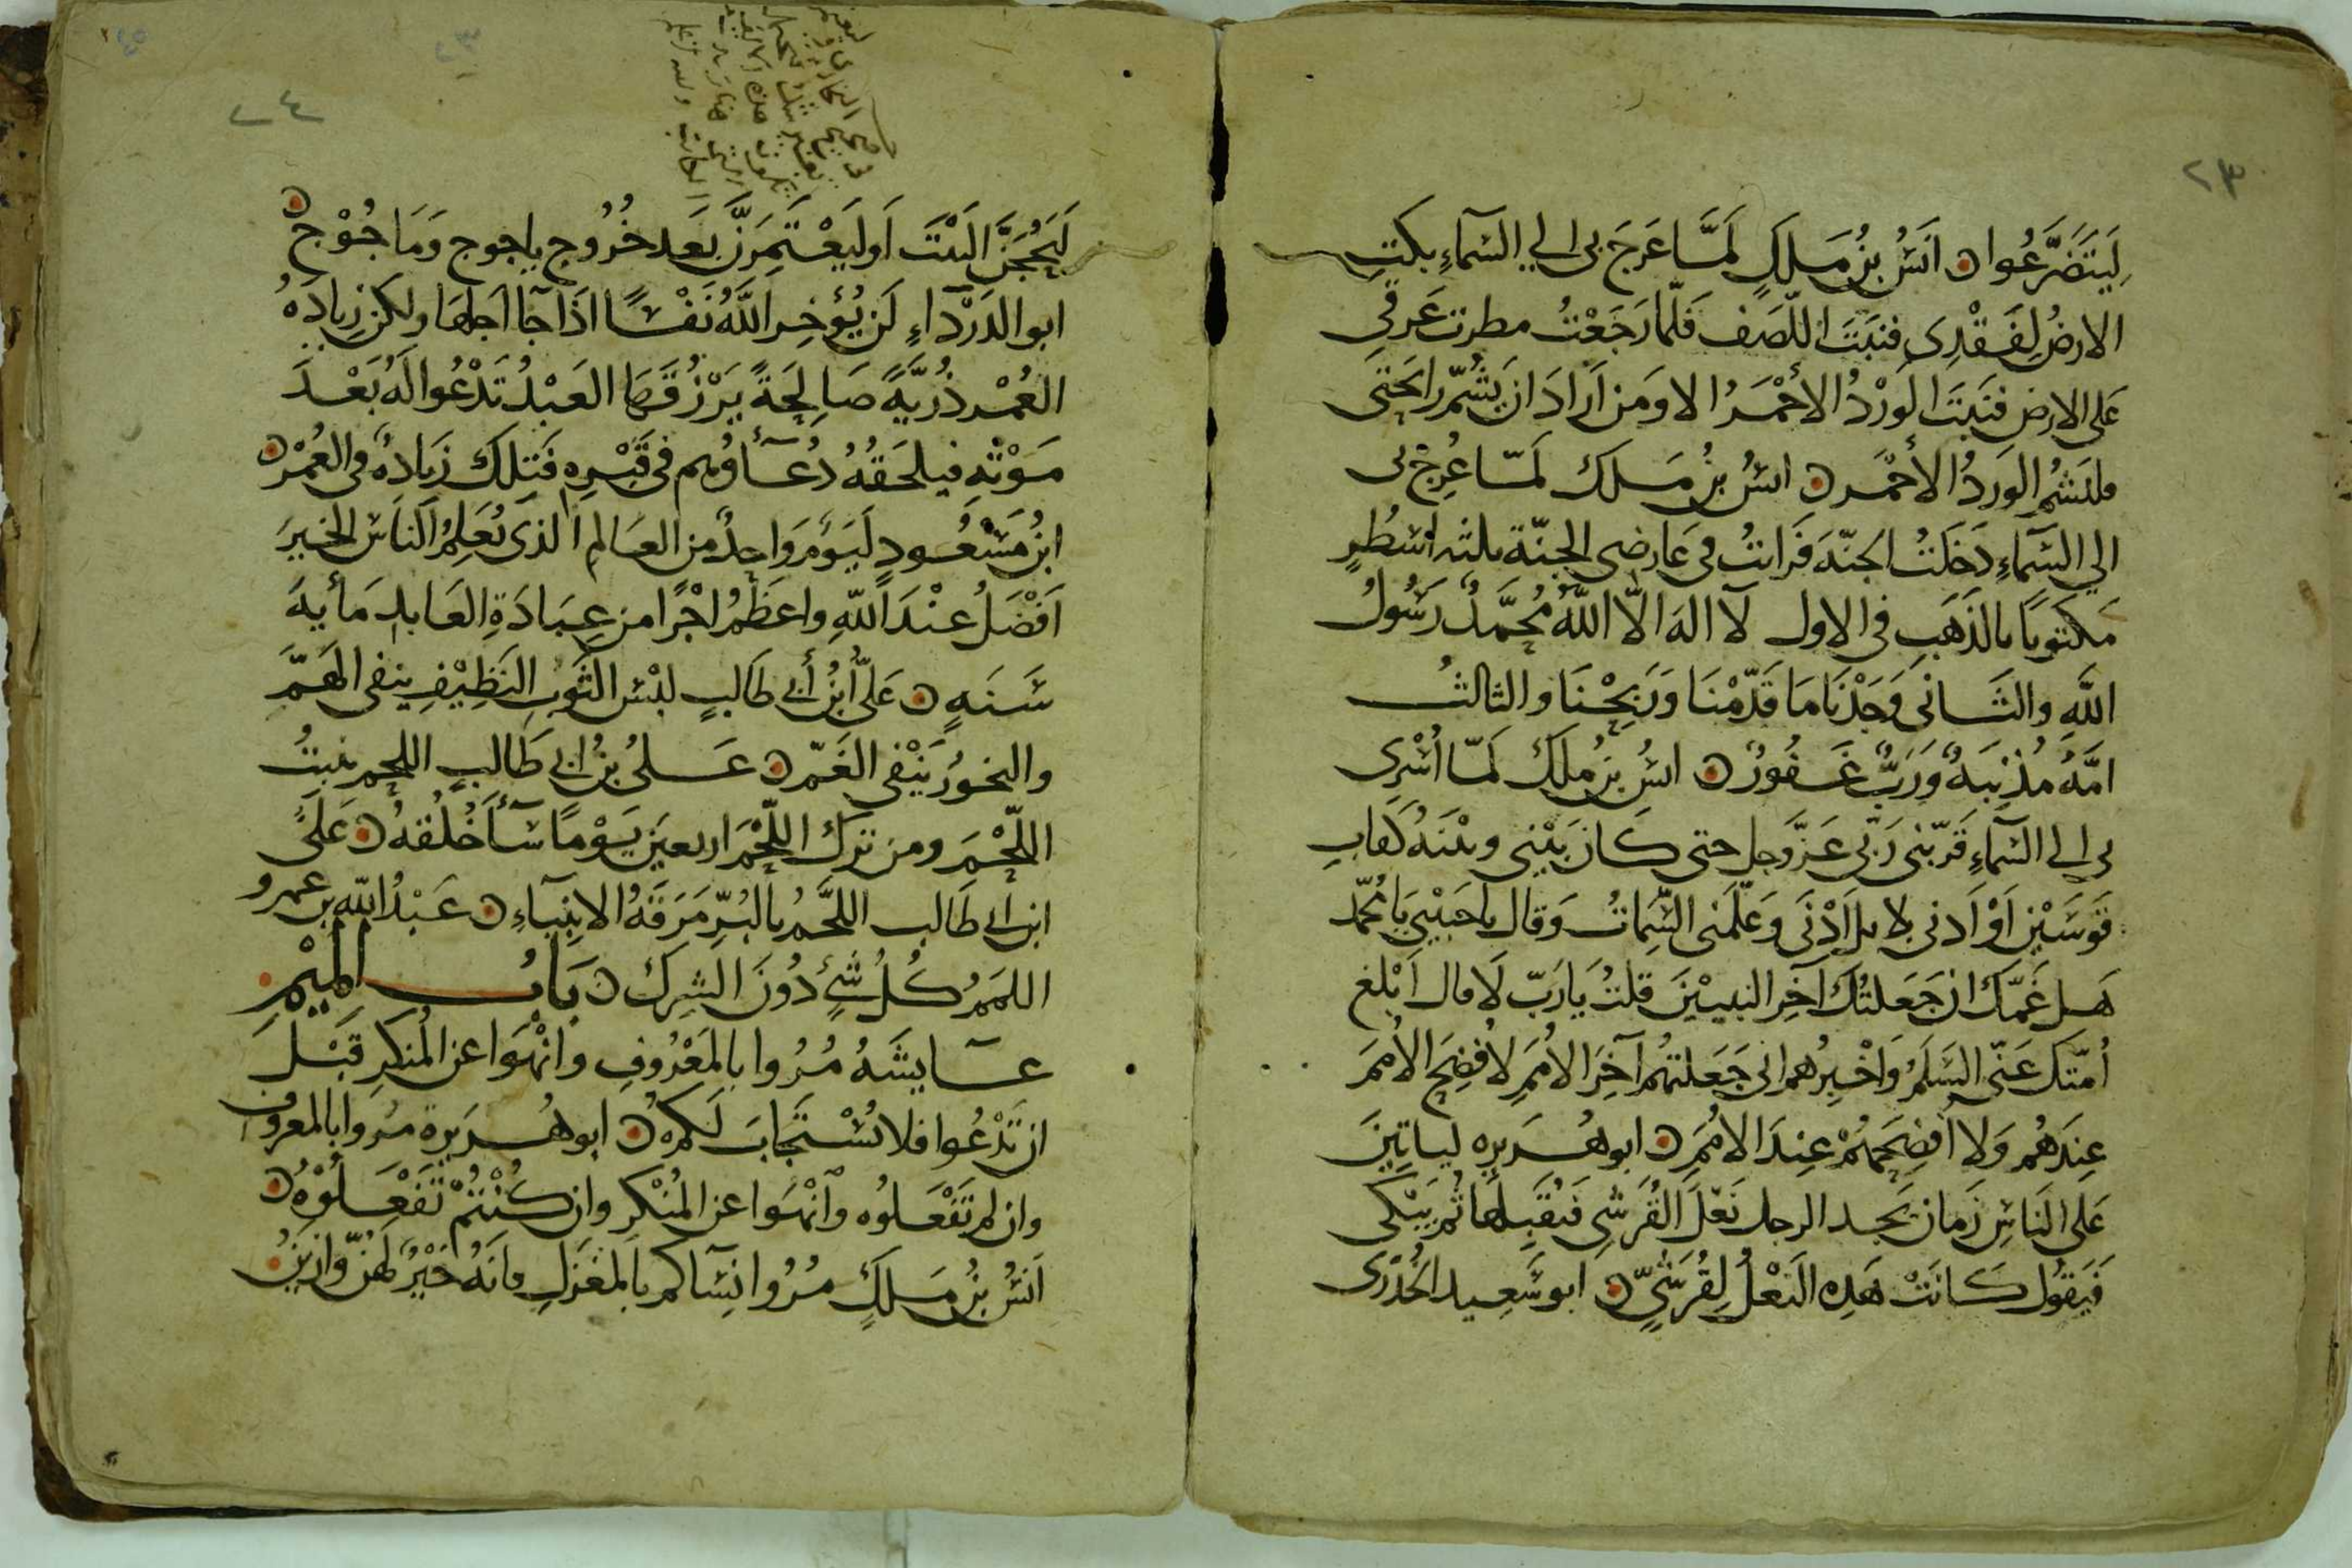 ٢٣
لِيَتَضَرَّعُوا ن انَسُ بْنُ مَلِكٍ لَمَّا عَرَجَ بى الي السَّمآءِ بكتِ
الارضُ لِفَقْدِى فنبَتَ اللّصَف فَلَمّا رَجَعْتُ مطرت عَرقي
عَلى الارض فنَبَتَ الوَرْدُ الأَحْمَرُ الا وَمَن اَرادَ ان يَشُمّ رايحتى
فليَشُم الوَردُ الأحْمَر ن انسُ بنُ مَلك لَمّا عُرِجَ بى
الي السَّمآءِ دَخَلتُ الجنّهَ فَرايتُ فى عَارضى الجنّة ثلثه اسْطُرٍ
مكتوبًا بالذَهَبِ في الاول لآ الهَ الاّ اللهُ مُحَمَّدٌ رَسُولُ
اللهِ والثَّانى وَجَدْنَا مَا قَدّمْنَا وَرَبِحْنَا والثالثُ
امّهٌ مُذْنِبَهٌ وَرَبٌّ غَفُورٌ ن انسُ بنُ ملكَ لَمّا اُسْرِى
بى الى السَّمآءِ قَرّبَنى رَبّى عَزّ وجل حتى كَانَ بَيْنِى وبَيْنَهُ كَقابِ
قَوسَيْنِ اَوْ اَدنى لا بل اَدْنَى وَعَلّمَنى السِّمَاتُ وَقال يا حَبيْبى يَا مُحمّد
هَل غَمّكَ ان جَعَلتُكَ آخِر النبييْنَ قلتُ يَا رَبّ لَا قال اَبْلغ
اُمّتكَ عَنّى السَّلَمُ وَاخْبِرهم انى جَعَلتهُم آخِرَ الاُمَمِ لاُفْضِحَ الاُمَمَ
عِندَهُم وَلا اُفضِحَهُمْ عِندَ الاُمَمِ ن ابو هُرَيره لياتِينَ
عَلى النَاسِ زَمان يَجد الرجل نَعْلَ القُرَشِى فَيُقَبِّلهَا ثُم يَبْكى
فَيَقوُل كَانَتْ هَذِه النَعْلُ لِقُرَشيٍّ ن ابو سَعِيد الخُدْرى
٢٤
لَيَحُجَنَّ البَيْتَ اَو ليَعْتَمِرَنَّ بَعد خُرُوج ياجوج وَمَاجُوْج ن
ابو الدَرْدَاءِ لَن يُؤخِر اللهُ نَفْسًا اذَا جآ اجلهَا ولكن زِيادَهُ
العُمْر ذُرِّيَّهً صَالِحَةً يَرْزُقَهَا العَبْدُ تَدْعُوا لَهُ بَعْدَ
مَوْتهِ فيلحَقهُ دُعَآؤُهم فى قَبْرِهِ فَتِلكَ زَيادهٌ فى العُمْر ن
ابنُ مَسْعُودٍ لَيَوْم وَاحدٌ من العَالم الذى يُعَلِّمُ النَاسَ الخيرَ
اَفْضَلُ عنْدَ اللهِ واعظَمُ اجْرًا من عِبَادَةِ العَابد مَأيهَ
سَنَهٍ ن عَلىُّ ابْنُ أَبى طَالبٍ لبْس الثَوبِ النَظِيْفِ ينفى الهَمّ
والبخورُ يَنْفى الغَمّ ن عَلىُ بنُ ابى طَالبٍ اللحم ينبتُ
اللّحْمَ ومن تَرَك اللّحْمَ اربعيَن يَوْمًا سَآ خُلُقهُ ن عَلىُّ
ابن ابى طَالب اللحَّمُ بالبُرِّ مَرَقَةُ الانبِيآءِ ن عَبْدُ اللهِ بن عمرو
اللمَمُ كُلُ شَيْءٍ دُونَ الشِرك ن بَابُ المِيْمِ
عَآيشَهُ مُرُوا بالمَعْرُوفِ وانْهَوا عن المُنكَرِ قَبْلَ
ان تَدْعُوا فلا يُسْتَجَابَ لَكم ن ابو هُريرة مُروا بالمعروفِ
وان لم تَفْعَلوُه وآنْهَوا عن المُنْكرِ وان كُنْتُمْ تَفْعَلُوْهُ ن
اَنسُ بنُ مَلكٍ مُرُوا نِسَاكم بالمغزَلِ فانَهُ خَيْرٌ لَهنّ وَازيَنُ